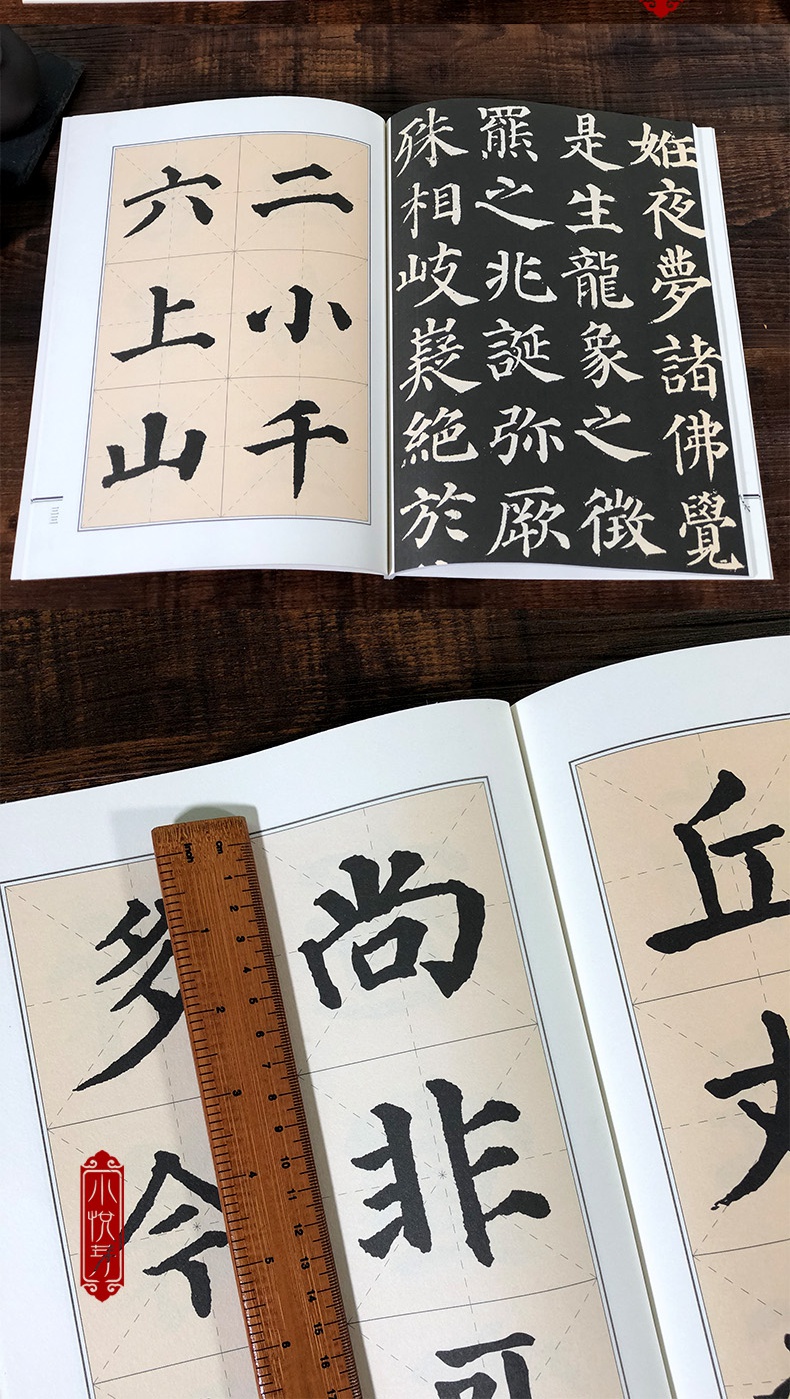 二小千
六上山
姙夜夢諸佛覺
是生龍象之徵
羆之兆誕弥厥
殊相岐嶷絶於
丘
尚非可
多今
inch
cm
1 2 3 4 5 6 7 8 9 10 11 12 13 14 15 16 17
1 2 3 4 5 6
小悦